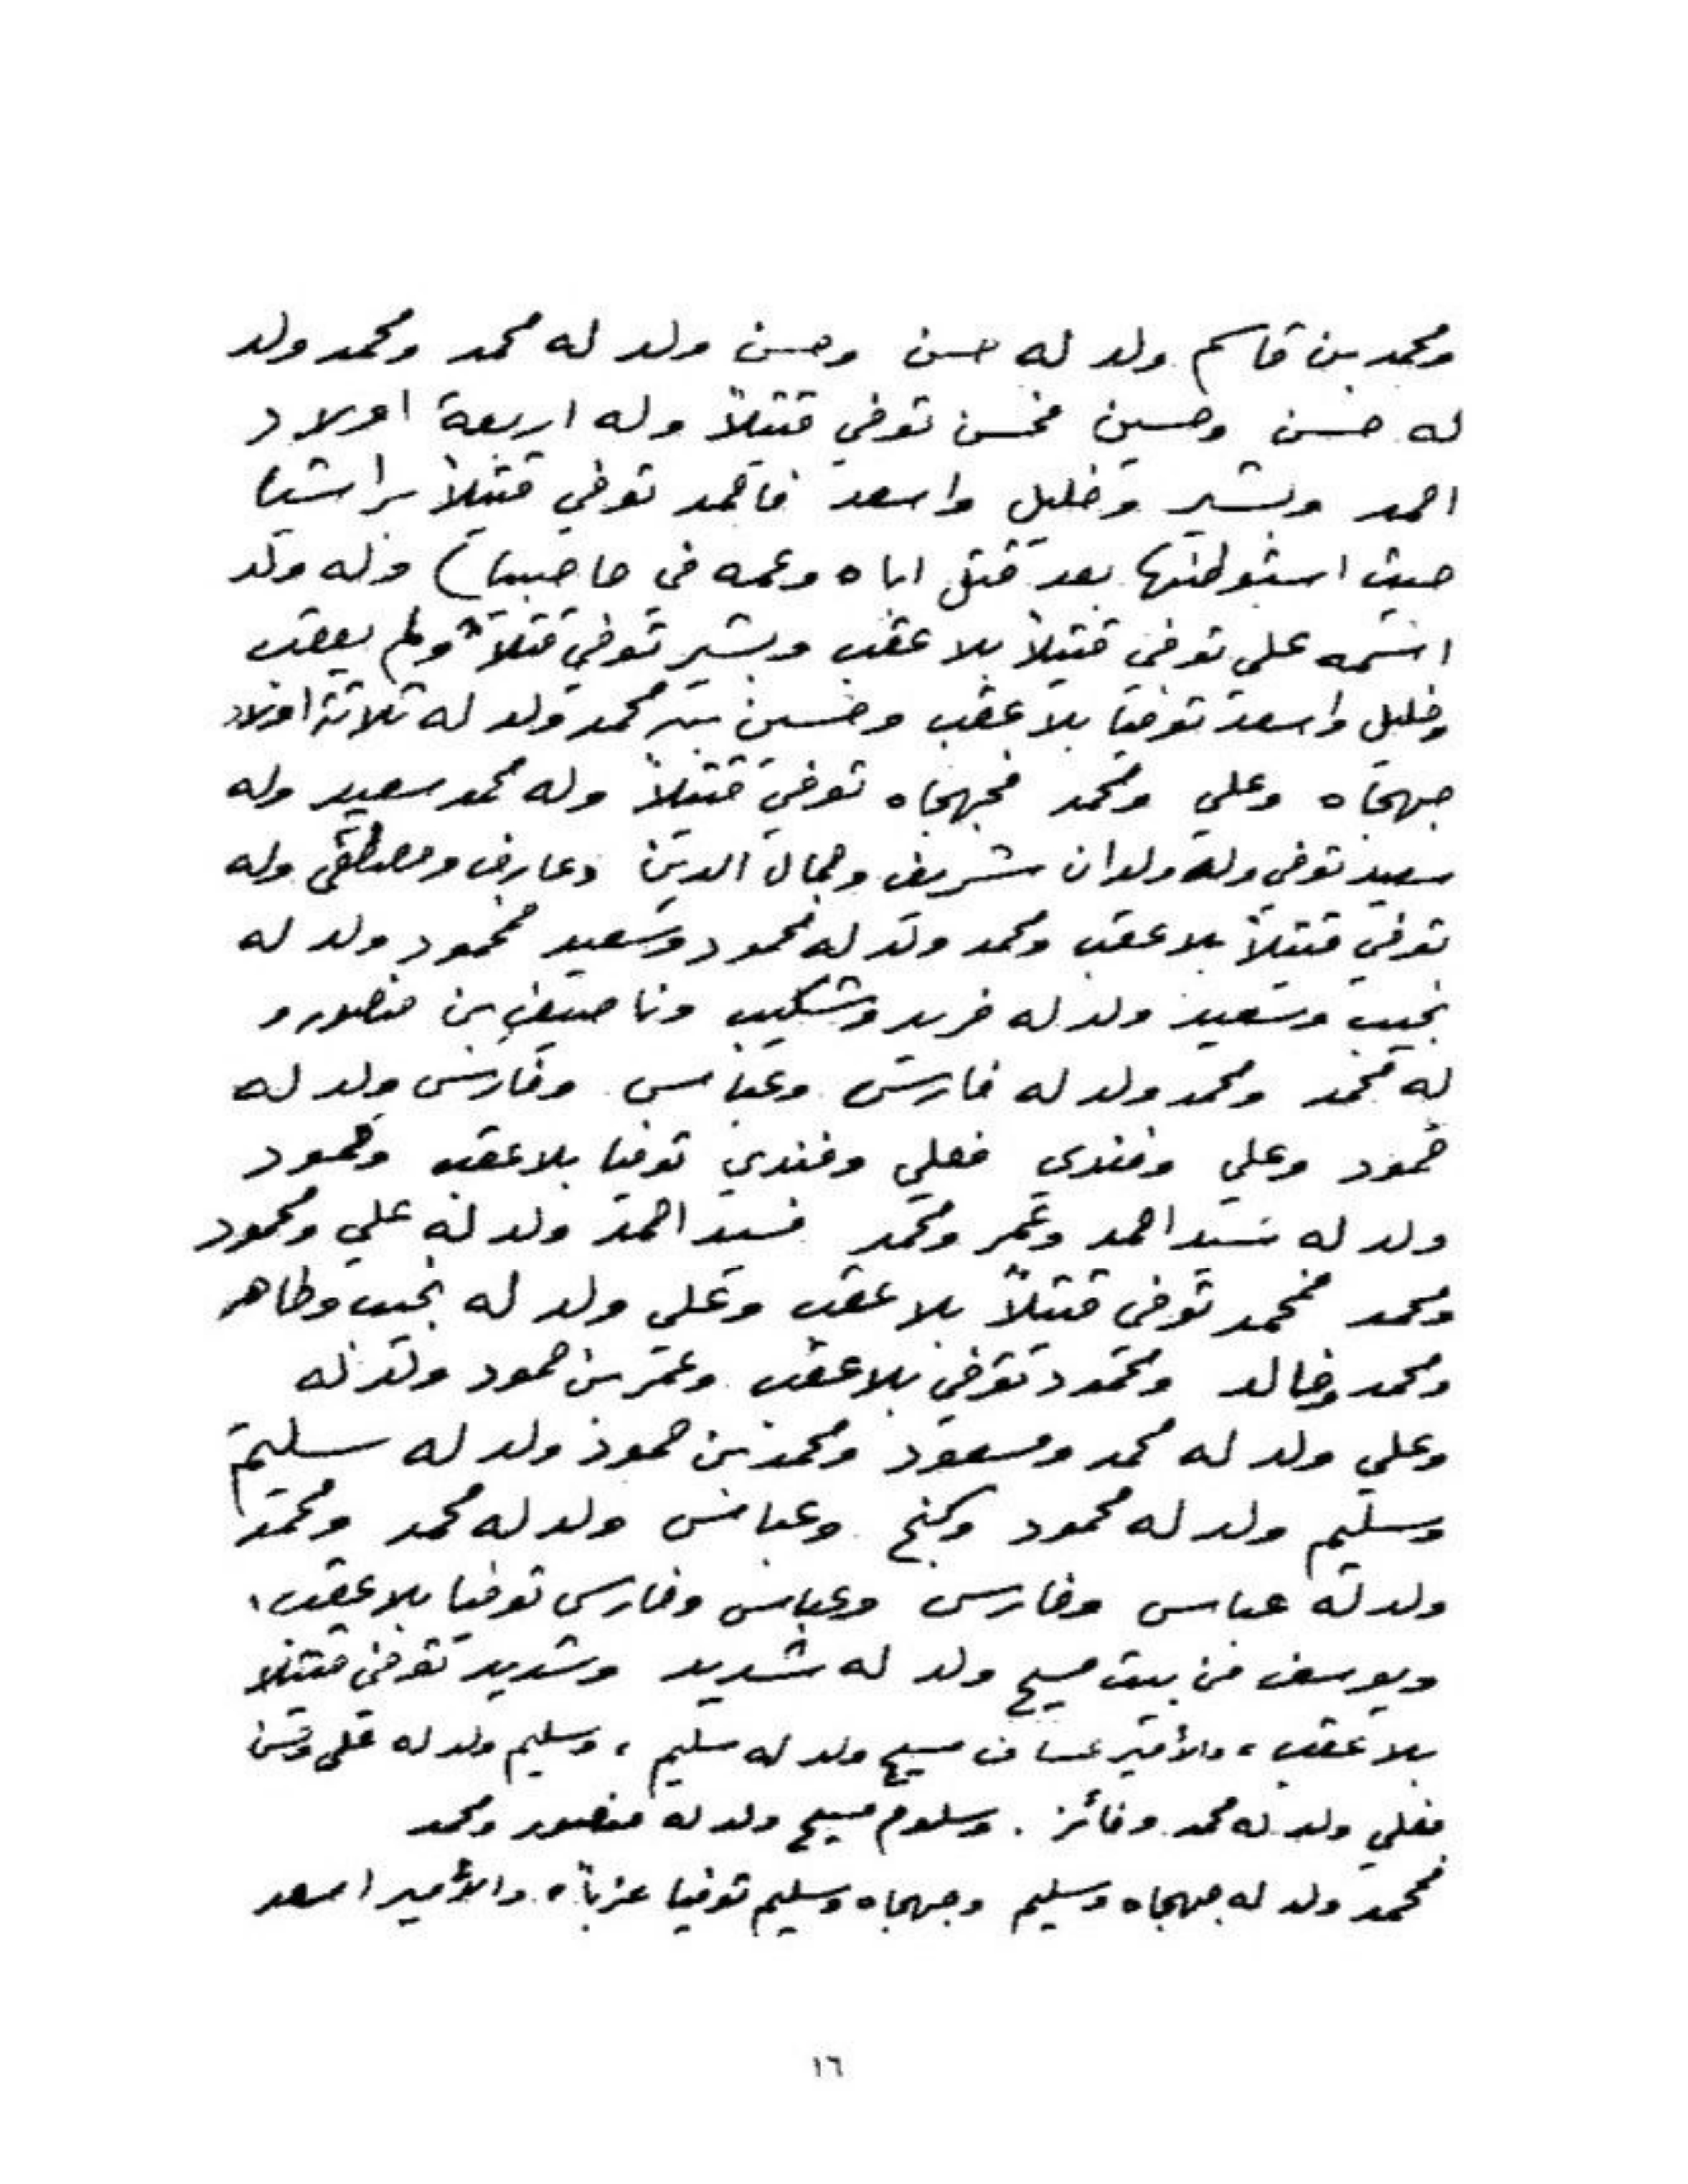 ومحمد بن قاسم ولد له حسن وحسن ولد له محمد ومحمد ولد
له حسن وحسين فحسن توفي قتيلاً وله اربعة اولاد
احمد وبشير وخليل واسعد فاحمد توفي قتيلاً براشيا
حيث استوطنها بعد قتل اباه وعمه في حاصبيا) وله ولد
اسمه علي توفي قتيلاً بلا عقب وبشير توفي قتلاً ولم يعقب
وخليل واسعد توفيا بلا عقب وحسين بن محمد ولد له ثلاثة اولاد
جهجاه وعلي ومحمد فجهجاه توفي قتيلاً وله محمد سعيد وله
سعيد توفي وله ولدان شريف وجمال الدين وعارف ومصطفى وله
توفي قتيلاً بلا عقب ومحمد ولد له محمود وسعيد فمحمود ولد له
نجيب وسعيد ولد له فريد وشكيب وناصيف بن منصور و
له محمد ومحمد ولد له فارس وعباس وفارس ولد له
حمود وعلي وفندي فعلي وفندي توفيا بلا عقب وحمود
ولد له سيد احمد وعمر ومحمد فسيد احمد ولد له علي ومحمود
ومحمد فمحمد توفي قتيلاً بلا عقب وعلي ولد له نجيب وطاهر
ومحمد وخالد ومحمود توفي بلا عقب وعمر بن حمود ولد له
وعلي ولد له محمد ومسعود ومحمد بن حمود ولد له سليم
وسليم ولد له محمود وكنج وعباس ولد له محمد ومحمد
ولد له عباس وفارس وعباس وفارس توفيا بلا عقب،
ويوسف من بيت مسيح ولد له شديد وشديد توفي قتيلا
بلا عقب، والأمير عساف مسيح ولد له سليم، وسليم ولد له علي وحسن
فعلي ولد له محمد وفائز. وسلوم مسيح ولد له منصور ومحمد
فمحمد ولد له جهجاه وسليم وجهجاه وسليم توفيا عزباً، والأمير اسعد
١٦